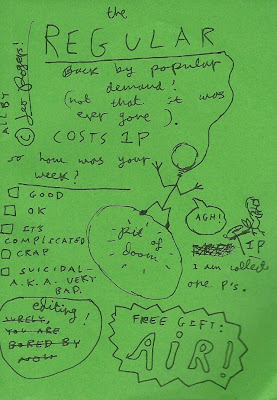 the
REGULAR
ALL BY
© Leo Rogers!
Back by popular
demand!
(not that it was
ever gone).
COSTS 1P
so how was your
week?
GOOD
OK
ITS
COMPLICATED
CRAP
SUICIDAL-
A.K.A. VERY
BAD.
Pit
of
doom
AGH!
1P
I am collect
one P's.
editing!
SURELY,
YOU ARE
BORED BY
NOW
FREE GIFT:
AiR!